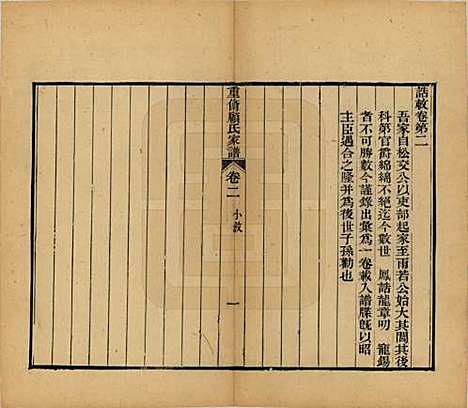 誥敕卷第二
吾家自松交公以吏部起家至雨若公始大其閥其後
科第官爵綿綿不絕迄今數世　鳳誥龍章明　寵錫
者不可勝數今謹錄出彙為一卷載入譜牒既以昭
主臣遇合之隆并為後世子孫勸也
重脩顧氏家譜　卷二　小敘　一